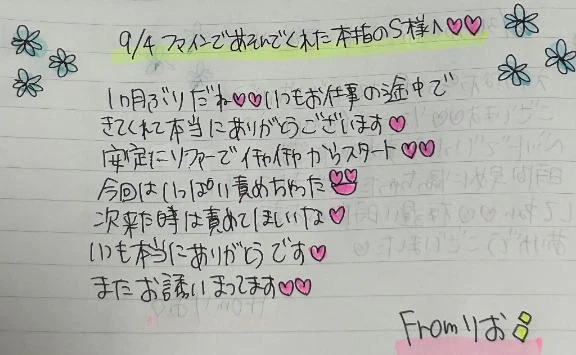 9/4 ファインであそんでくれた本指のS様へ♡♡
1ヶ月ぶりだね♡♡いつもお仕事の途中で
きてくれて本当にありがとうございます♡
安定にソファーでイチャイチャからスタート♡♡
今回はいっぱい責めちゃった
次来た時は責めてほしいな♡
いつも本当にありがとうです♡
またお誘いまってます♡♡
Fromりお